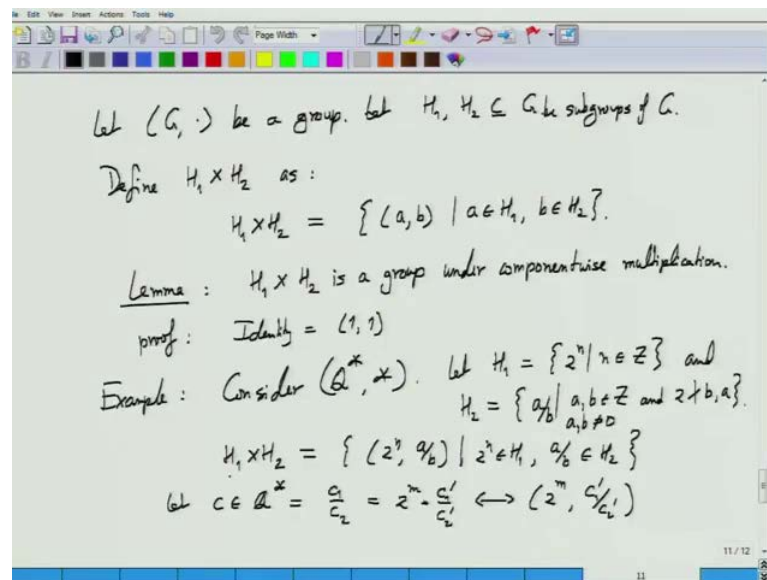 Edit View Insert Actions Tools Help
Page Width
B I
Let (G, ·) be a group. Let H₁, H₂ ⊆ G be subgroups of G.
Define H₁ × H₂ as :
H₁ × H₂ = { (a, b) | a ∈ H₁, b ∈ H₂ }.
Lemma : H₁ × H₂ is a group under componentwise multiplication.
proof : Identity = (1, 1)
Example : Consider (Q*, *). Let H₁ = { 2ⁿ | n ∈ Z } and
H₂ = { a/b | a, b ∈ Z and 2 ∤ b, a }.
a, b ≠ 0
H₁ × H₂ = { (2ⁿ, a/b) | 2ⁿ ∈ H₁, a/b ∈ H₂ }
Let c ∈ Q* = c₁/c₂ = 2ᵐ · c₁'/c₂' ⟷ (2ᵐ, c₁'/c₂')
11 / 12
11